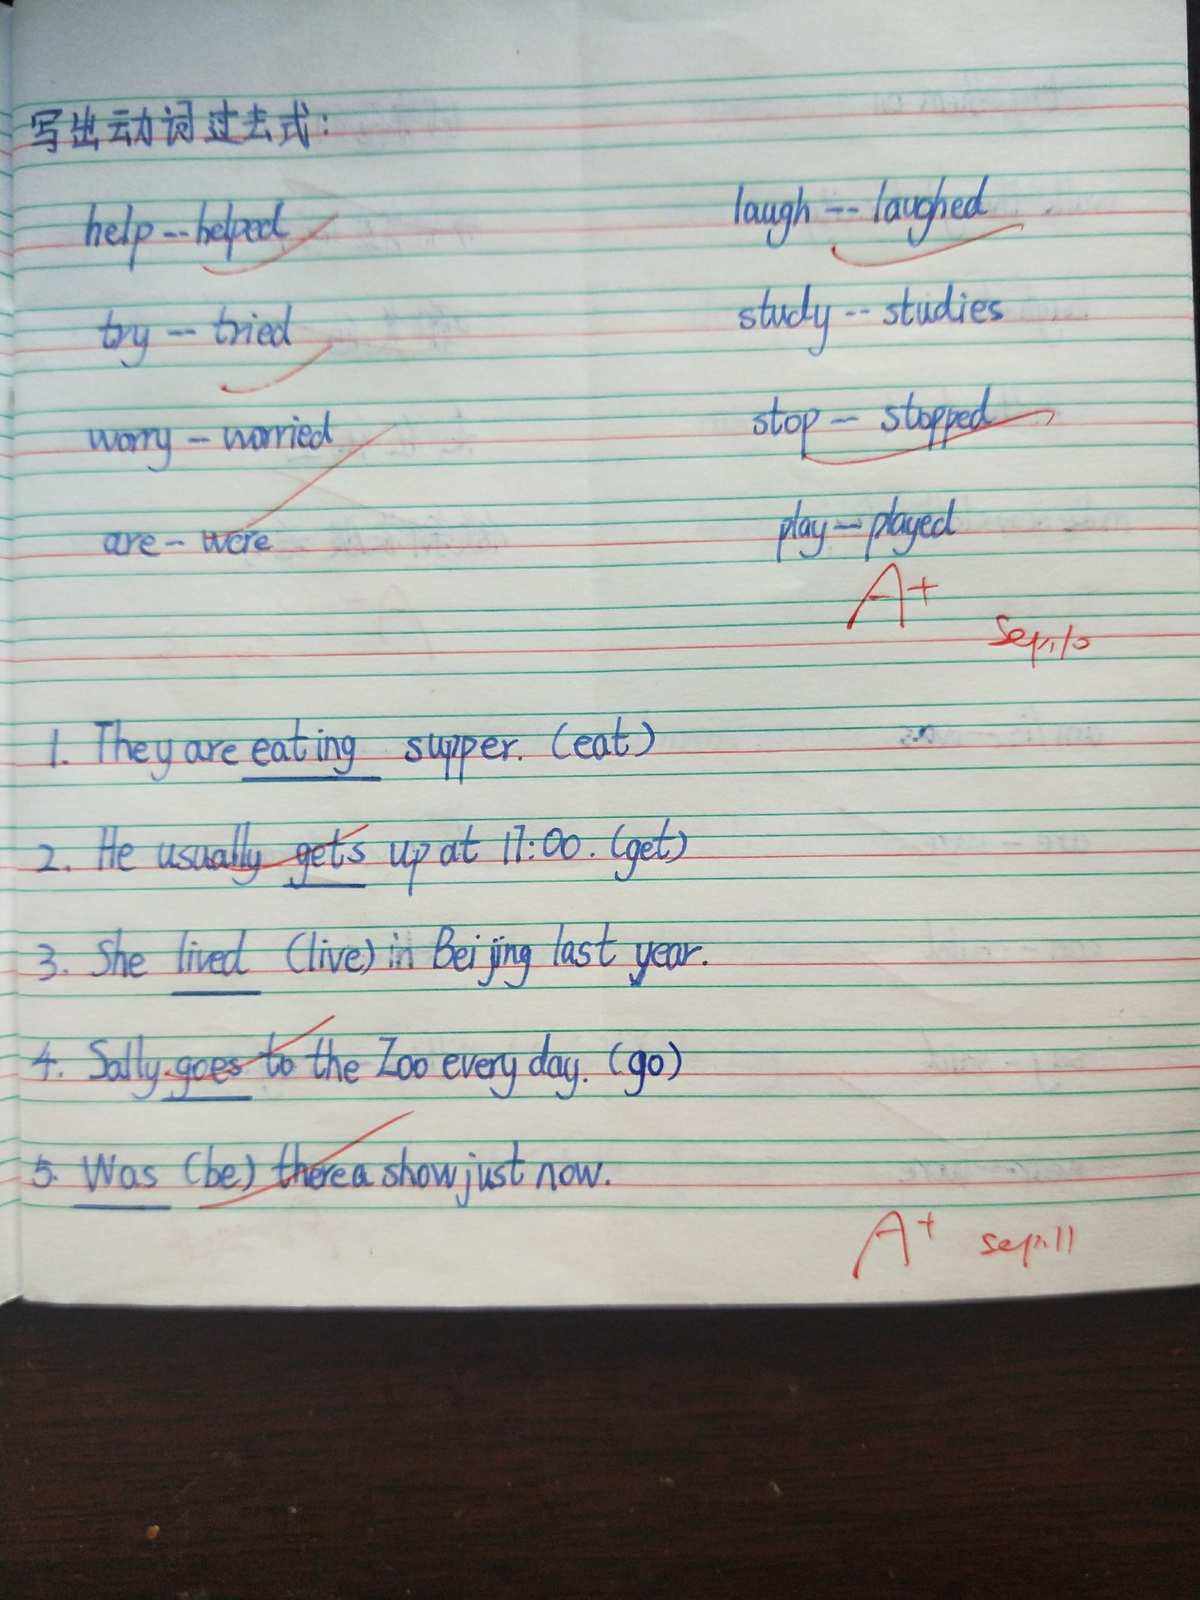 写出动词过去式:
help--helped laugh -- laughed
try -- tried study -- studies
worry -- worried stop -- stopped
are -- were play -- played
A+
Sep.10
1. They are eating supper. (eat)
2. He usually gets up at 17:00. (get)
3. She lived (live) in Beijing last year.
4. Sally goes to the Zoo every day. (go)
5. Was (be) there a show just now.
A+ sep.11